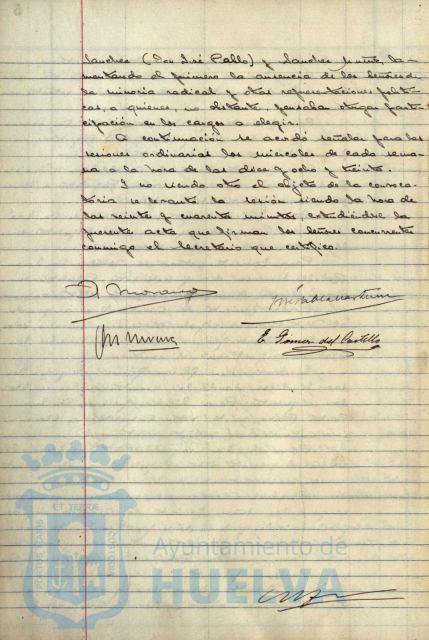 Sanchez (Don José Pablo) y Sanchez la-
mentando el primero la ausencia de los señores de
la minoria radical y otras representaciones politi-
cas, a quienes, no obstante, pensaba otorgar parti-
cipación en los cargos a elegir.
A continuación se acordó señalar para las
sesiones ordinarias los miercoles de cada sema-
na a la hora de las diez y ocho y treinta.
Y no siendo otro el objeto de la convoca-
toria se levanta la sesión siendo la hora de
las veinte y cuarenta minutos, extendiendose la
presente acta que firman los señores concurrentes
conmigo el Secretario que certifico.
E. Gómez del Castillo
Ayuntamiento de
HUELVA